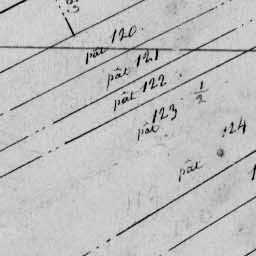 pât 120
pât 121
pât 122
pât 123 1/2
pât 124